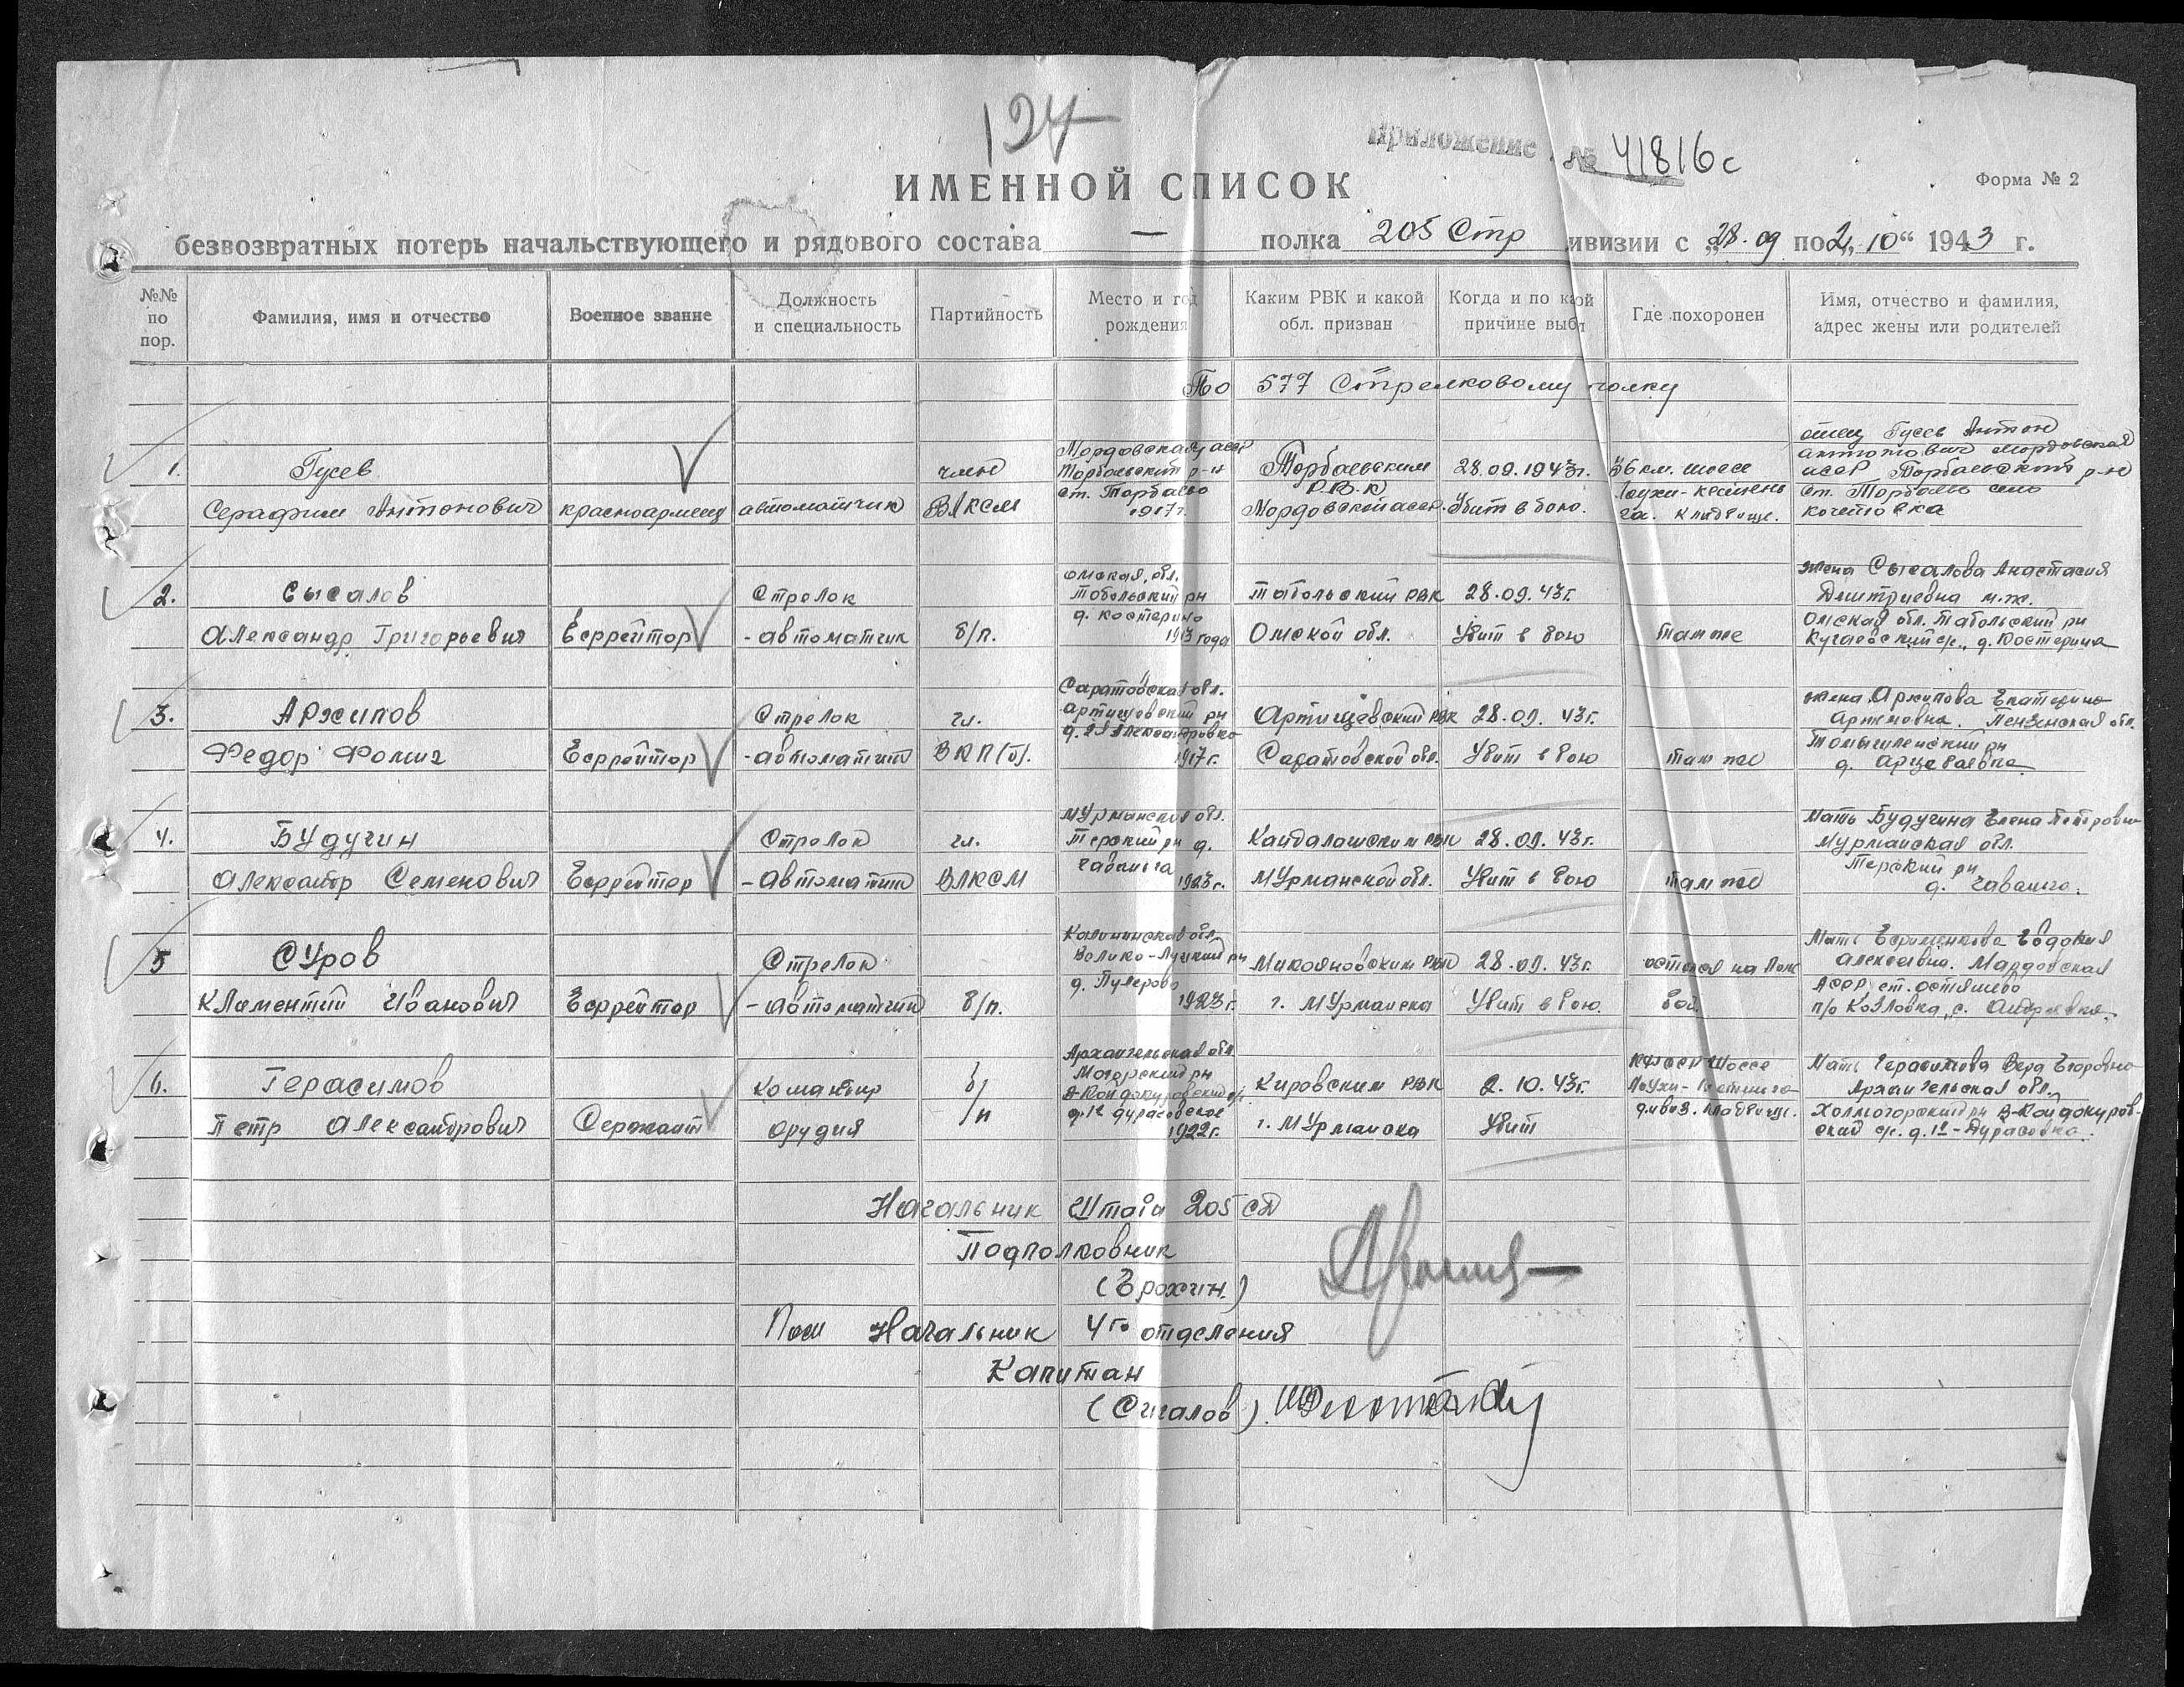 124
Приложение № 41816с
ИМЕННОЙ СПИСОК
Форма № 2
безвозвратных потерь начальствующего и рядового состава — полка 205 Стр ивизии с „28.09 по 2„ 10“ 1943 г.
№№ по пор.
Фамилия, имя и отчество
Военное звание
Должность и специальность
Партийность
Место и год рождения
Каким РВК и какой обл. призван
Когда и по какой причине выбыл
Где похоронен
Имя, отчество и фамилия, адрес жены или родителей
По 577 Стрелковому полку
1.
Гусев
Серафим Антонович
красноармеец
автоматчик
член
ВЛКСМ
Мордовская АССР
Торбаевский р-н
ст. Торбаево
1917г.
Торбаевским
Р.В.К
Мордовской асср.
28.09.1943г.
Убит в бою.
36 км. шоссе
Лоухи-Кестеньга. кладбище.
отец Гусев Антон
Антонович Мордовская
АССР Торбаевский р-н
ст. Торбаево село
Кочетовка
2.
Сысалов
Александр Григорьевич
Ефрейтор
Стрелок
-автоматчик
б/п.
Омская обл.
Тобольский рн
д. Костерино
1913 года
Тобольский РВК
Омской обл.
28.09.43г.
Убит в бою
там же
жена Сысалова Анастасия
Дмитриевна м.ж.
Омская обл. Тобольский рн
д. Костерина
3.
Архипов
Федор Фомич
Ефрейтор
Стрелок
-автоматчик
чл.
ВКП(б).
Саратовская обл.
Артищевский рн
д. 2я Александровка
1917г.
Артищевский РВК
Саратовской обл.
28.09.43г.
Убит в бою
там же
жена Архипова Екатерина
Пензенская обл.
4.
Будучин
Александр Семенович
Ефрейтор
Стрелок
-Автоматчик
чл.
ВЛКСМ
Мурманская обл.
Терский рн д.
Чаваньга
1923г.
Кандалашским РВК
Мурманской обл.
28.09.43г.
Убит в бою
там же
Мать Будучина Елена Петровна
Мурманская обл.
Терский рн
д. Чаваньга.
5
Суров
Климентий Иванович
Ефрейтор
Стрелок
-Автоматчик
б/п.
Калининская обл.
Велико-Луцкий рн
1923г.
Микояновским РВК
г. Мурманска
28.09.43г.
Убит в бою.
остался на поле
боя.
Мать Ефременкова Евдокия
Алексеевна. Мордовская
АССР
п/о Козловка, с. Андреевка.
6.
Герасимов
Петр Александрович
Сержант
командир
орудия
б/п
Архангельская обл
1922г.
Кировским РВК
г. Мурманска
2.10.43г.
Убит
шоссе
Лоухи-Кестеньга
дивиз. кладбище.
Мать Герасимова Вера Егоровна
Архангельская обл.
Холмогорский рн
Начальник Штаба 205 СД
Подполковник
(Ерохин.)
Пом Начальник 4го отделения
Капитан
(Сигалов)